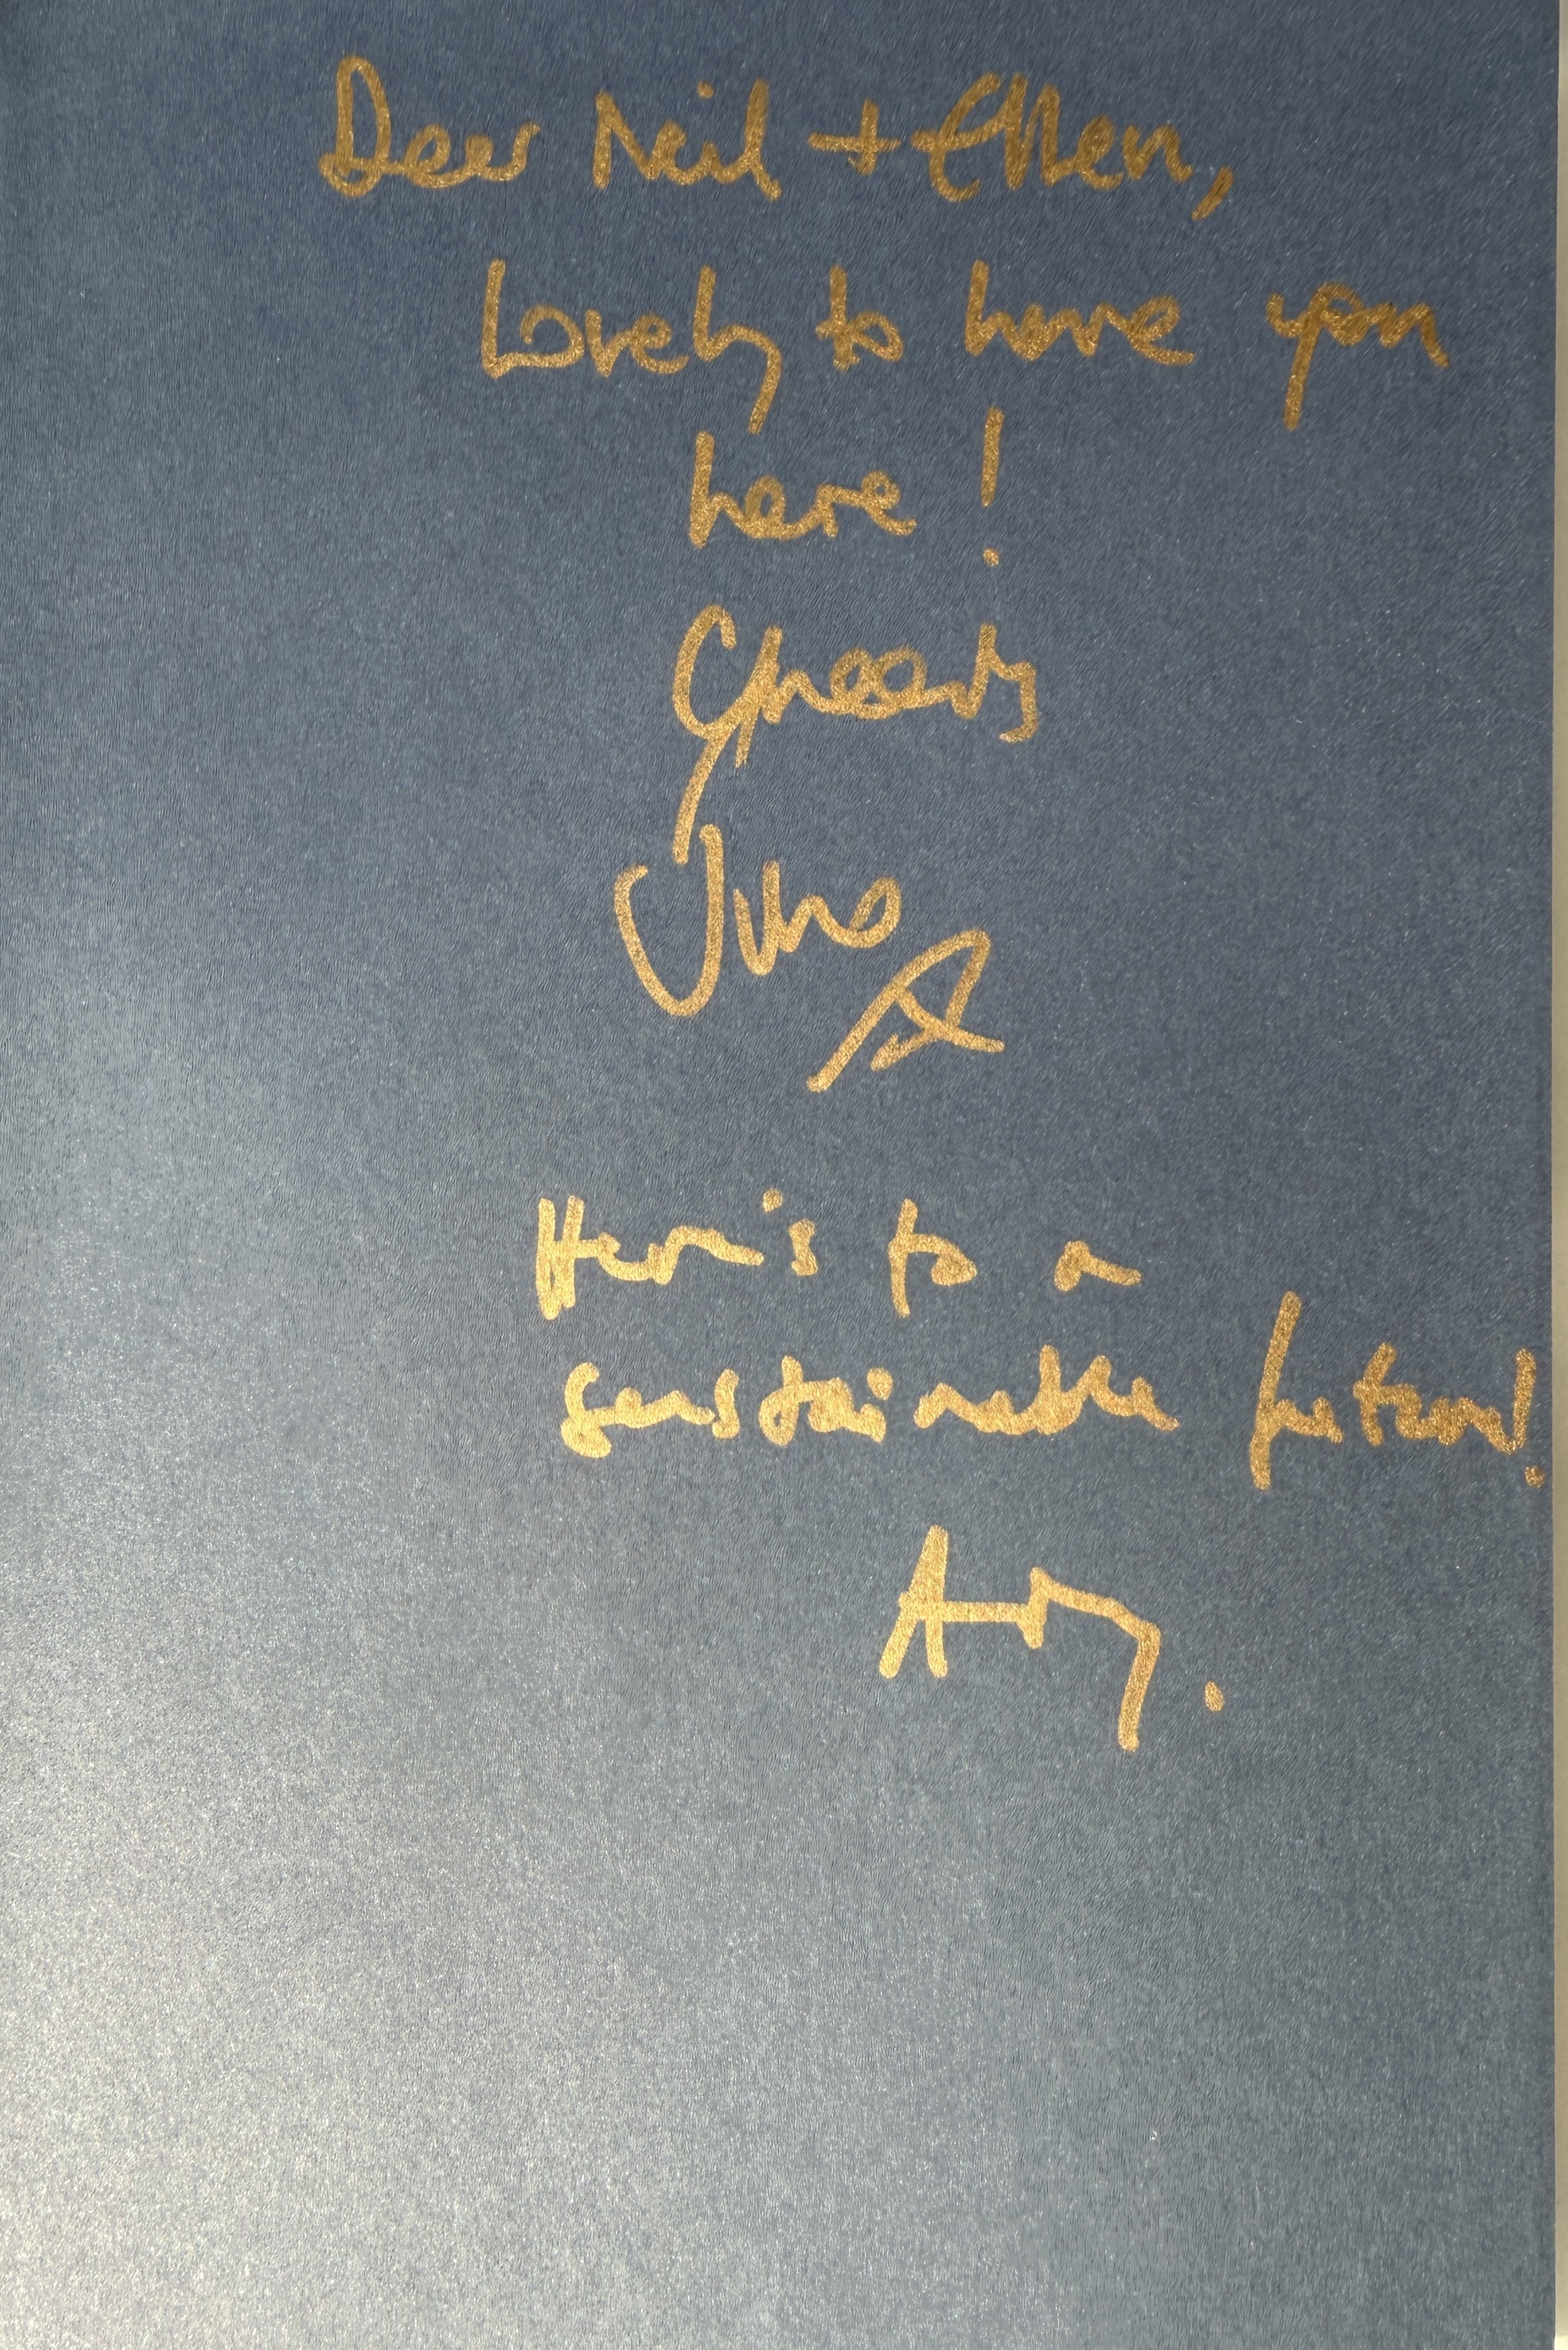 Dear Neil + Ellen,
Lovely to have you
here!
Cheers
Here's to a
sustainable future!